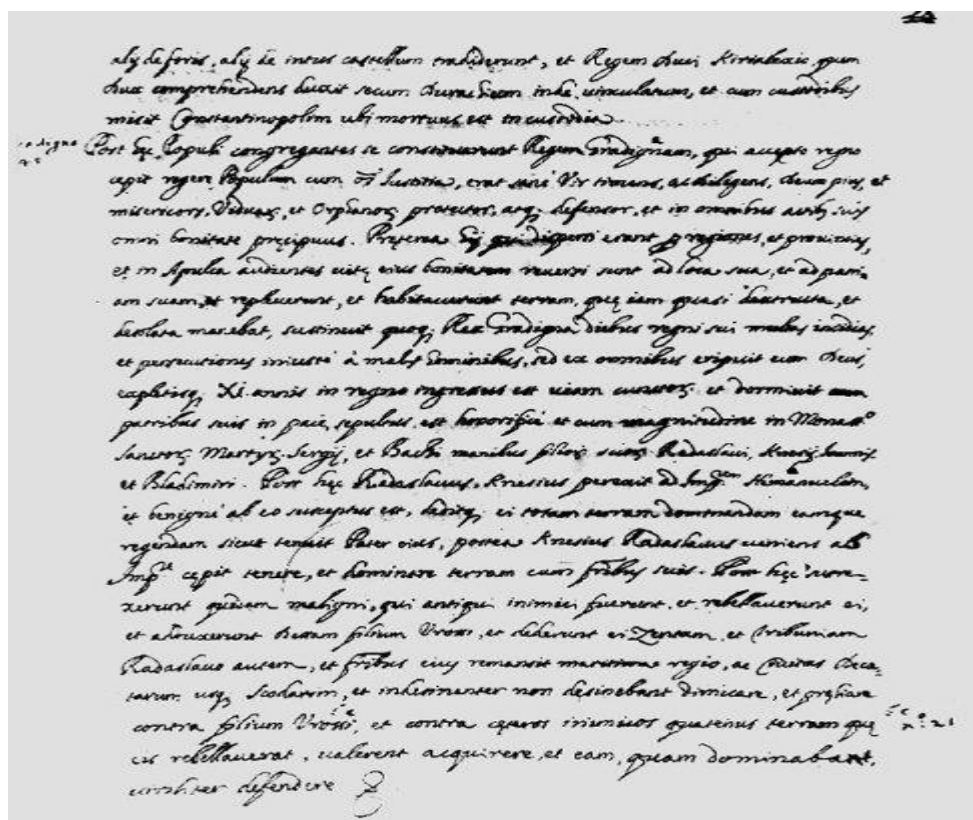 alij de foris, alij de intus castellum tradiderunt, et Regem duci Kirialexio, quem
dux comprehendens duxit secum Durachium inde vinculatum, et cum custodibus
misit Constantinopolim ubi mortuus est in custodia
Post hęc Populi congregantes se constituerunt Regem Gradignam, qui accepto regno
cępit regere Populum cum Iustitia, erat Vir timens, ac diligens, Deum pius, et
misericors, Viduarz, et Orphanorz protector, atq; defensor, et in omnibus suis
omni bonitate pręcipuus. Preterea qui dispersi erant p regiones, et provincias,
et in Apulia audientes eius bonitatem reversi sunt ad loca sua, et ad patri-
am suam, et repleverunt, et habitaverunt terram, quę iam quasi destructa, et
desolata manebat, sustinuit quoq; Rex Gradigna diebus regni sui multas insidias,
et persecutiones iniuste à malis hominibus, sed ex omnibus eripuit eum Deus,
expletisq; XI annis in regno ingressus est viam et dormivit cum
patribus suis in pace, sepultus est honorificè et cum magnitudine in Monast.º
Sanctorz Martyrz Sergij, et Bachi manibus filiorz suorz Radaslavi, Ioannis
et Bladimiri. Post hęc Radaslavus Knesius perexit ad Imp.em Hemanuelem,
et benignè ab eo susceptus est, deditq; ei totam terram dominandam eamque
regendam sicut tenuit Pater eius, postea Knesius Radaslavus veniens ab
Imp.e cępit tenere, et dominare terram cum fribus suis. Post hęc surre-
xerunt quidam maligni, qui antiqui inimici fuerunt, et rebellaverunt ei,
et adduxerunt Dessam filium Vrossi, et dederunt ei Zentam, et Tribuniam
Radaslavo autem, et fribus eius remansit maritima regio, ac Civitas Deca-
tarum usq; Scodarim, et indesinenter non desinebant dimicare, et pręliare
contra filium Vrossi, et contra cęteros inimicos quatenus terram quę
eis rebellaverat, valerent acquirere, et eam, quam dominabant,
viriliter defendere